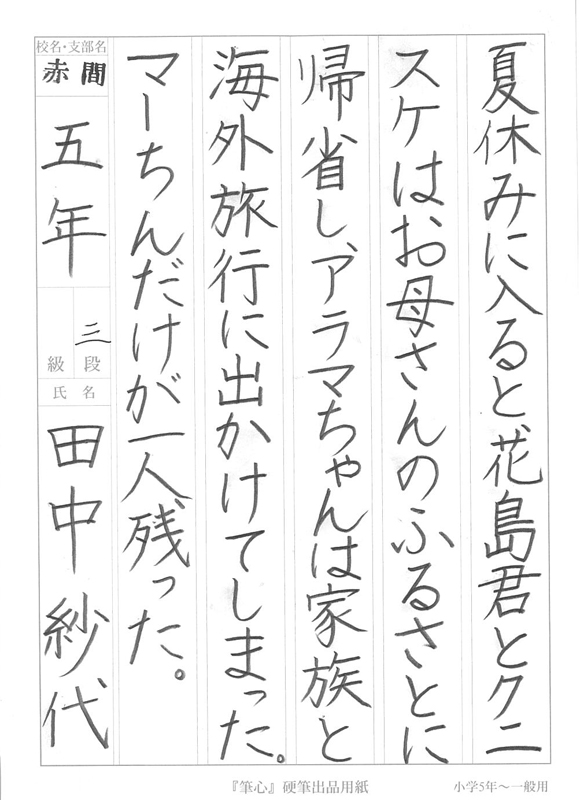 夏休みに入ると、花島君とクニ
スケはお母さんのふるさとに
帰省し、アラマちゃんは家族と
海外旅行に出かけてしまった。
マーちんだけが一人、残った。
校名・支部名
赤間
五年
三
級 段
氏名
田中紗代
『筆心』硬筆出品用紙
小学5年〜一般用